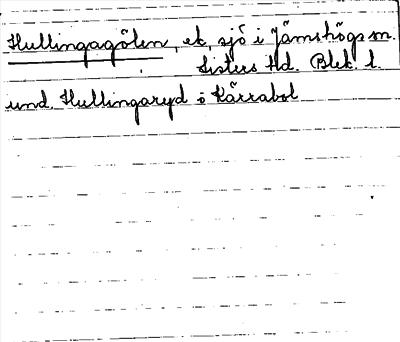 Hullingagölen, ek, sjö i Jämshögs sn.
Listers Hd. Blek. l.
und. Hullingaryd o Kärrabol